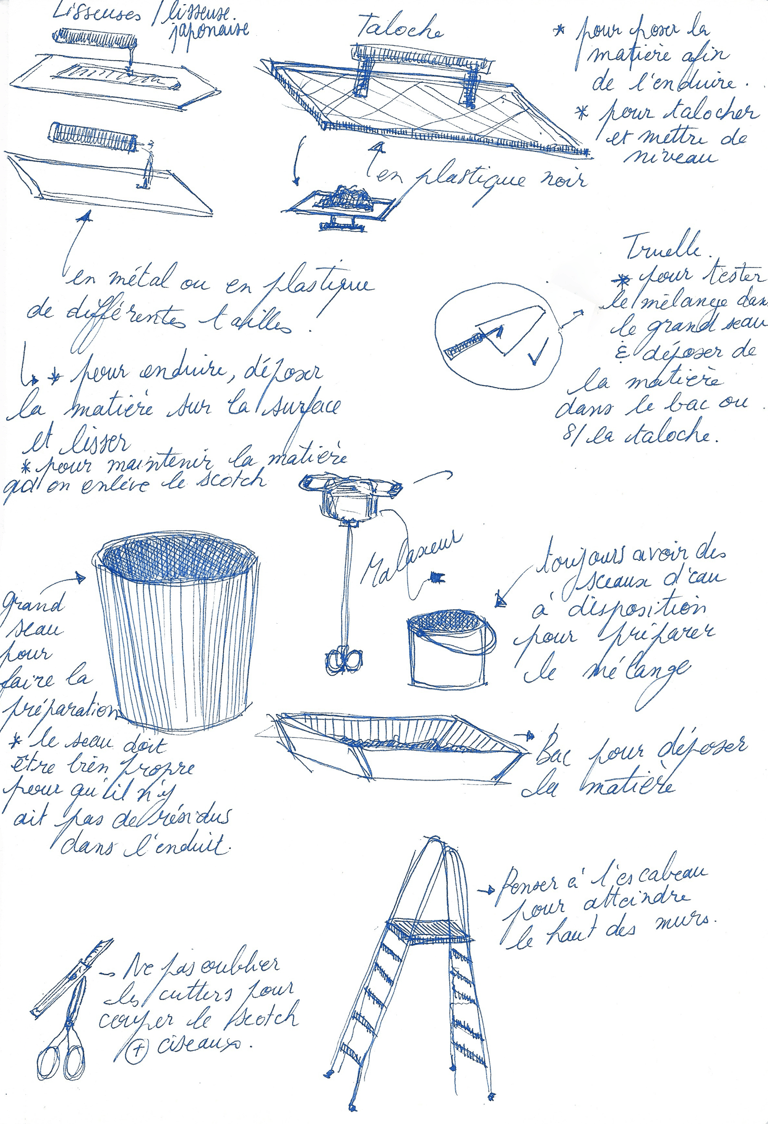 Lisseuses / lisseuse
japonaise
Taloche
* pour poser la
matière afin
de l'enduire.
* pour talocher
et mettre de
niveau
en plastique noir
en métal ou en plastique
de différentes tailles.
* pour enduire, déposer
la matière sur la surface
et lisser
* pour maintenir la matière
qd on enlève le scotch
Truelle.
* pour tester
le mélange dans
le grand seau
& déposer de
la matière
dans le bac ou
s/ la taloche.
Malaxeur
grand
seau
pour
faire la
préparation
* le seau doit
être bien propre
pour qu'il n'y
ait pas de résidus
dans l'enduit.
toujours avoir des
sceaux d'eau
à disposition
pour préparer
le mélange
Bac pour déposer
la matière
Penser à l'escabeau
pour atteindre
le haut des murs.
Ne pas oublier
les cutters pour
couper le scotch
+ ciseaux.